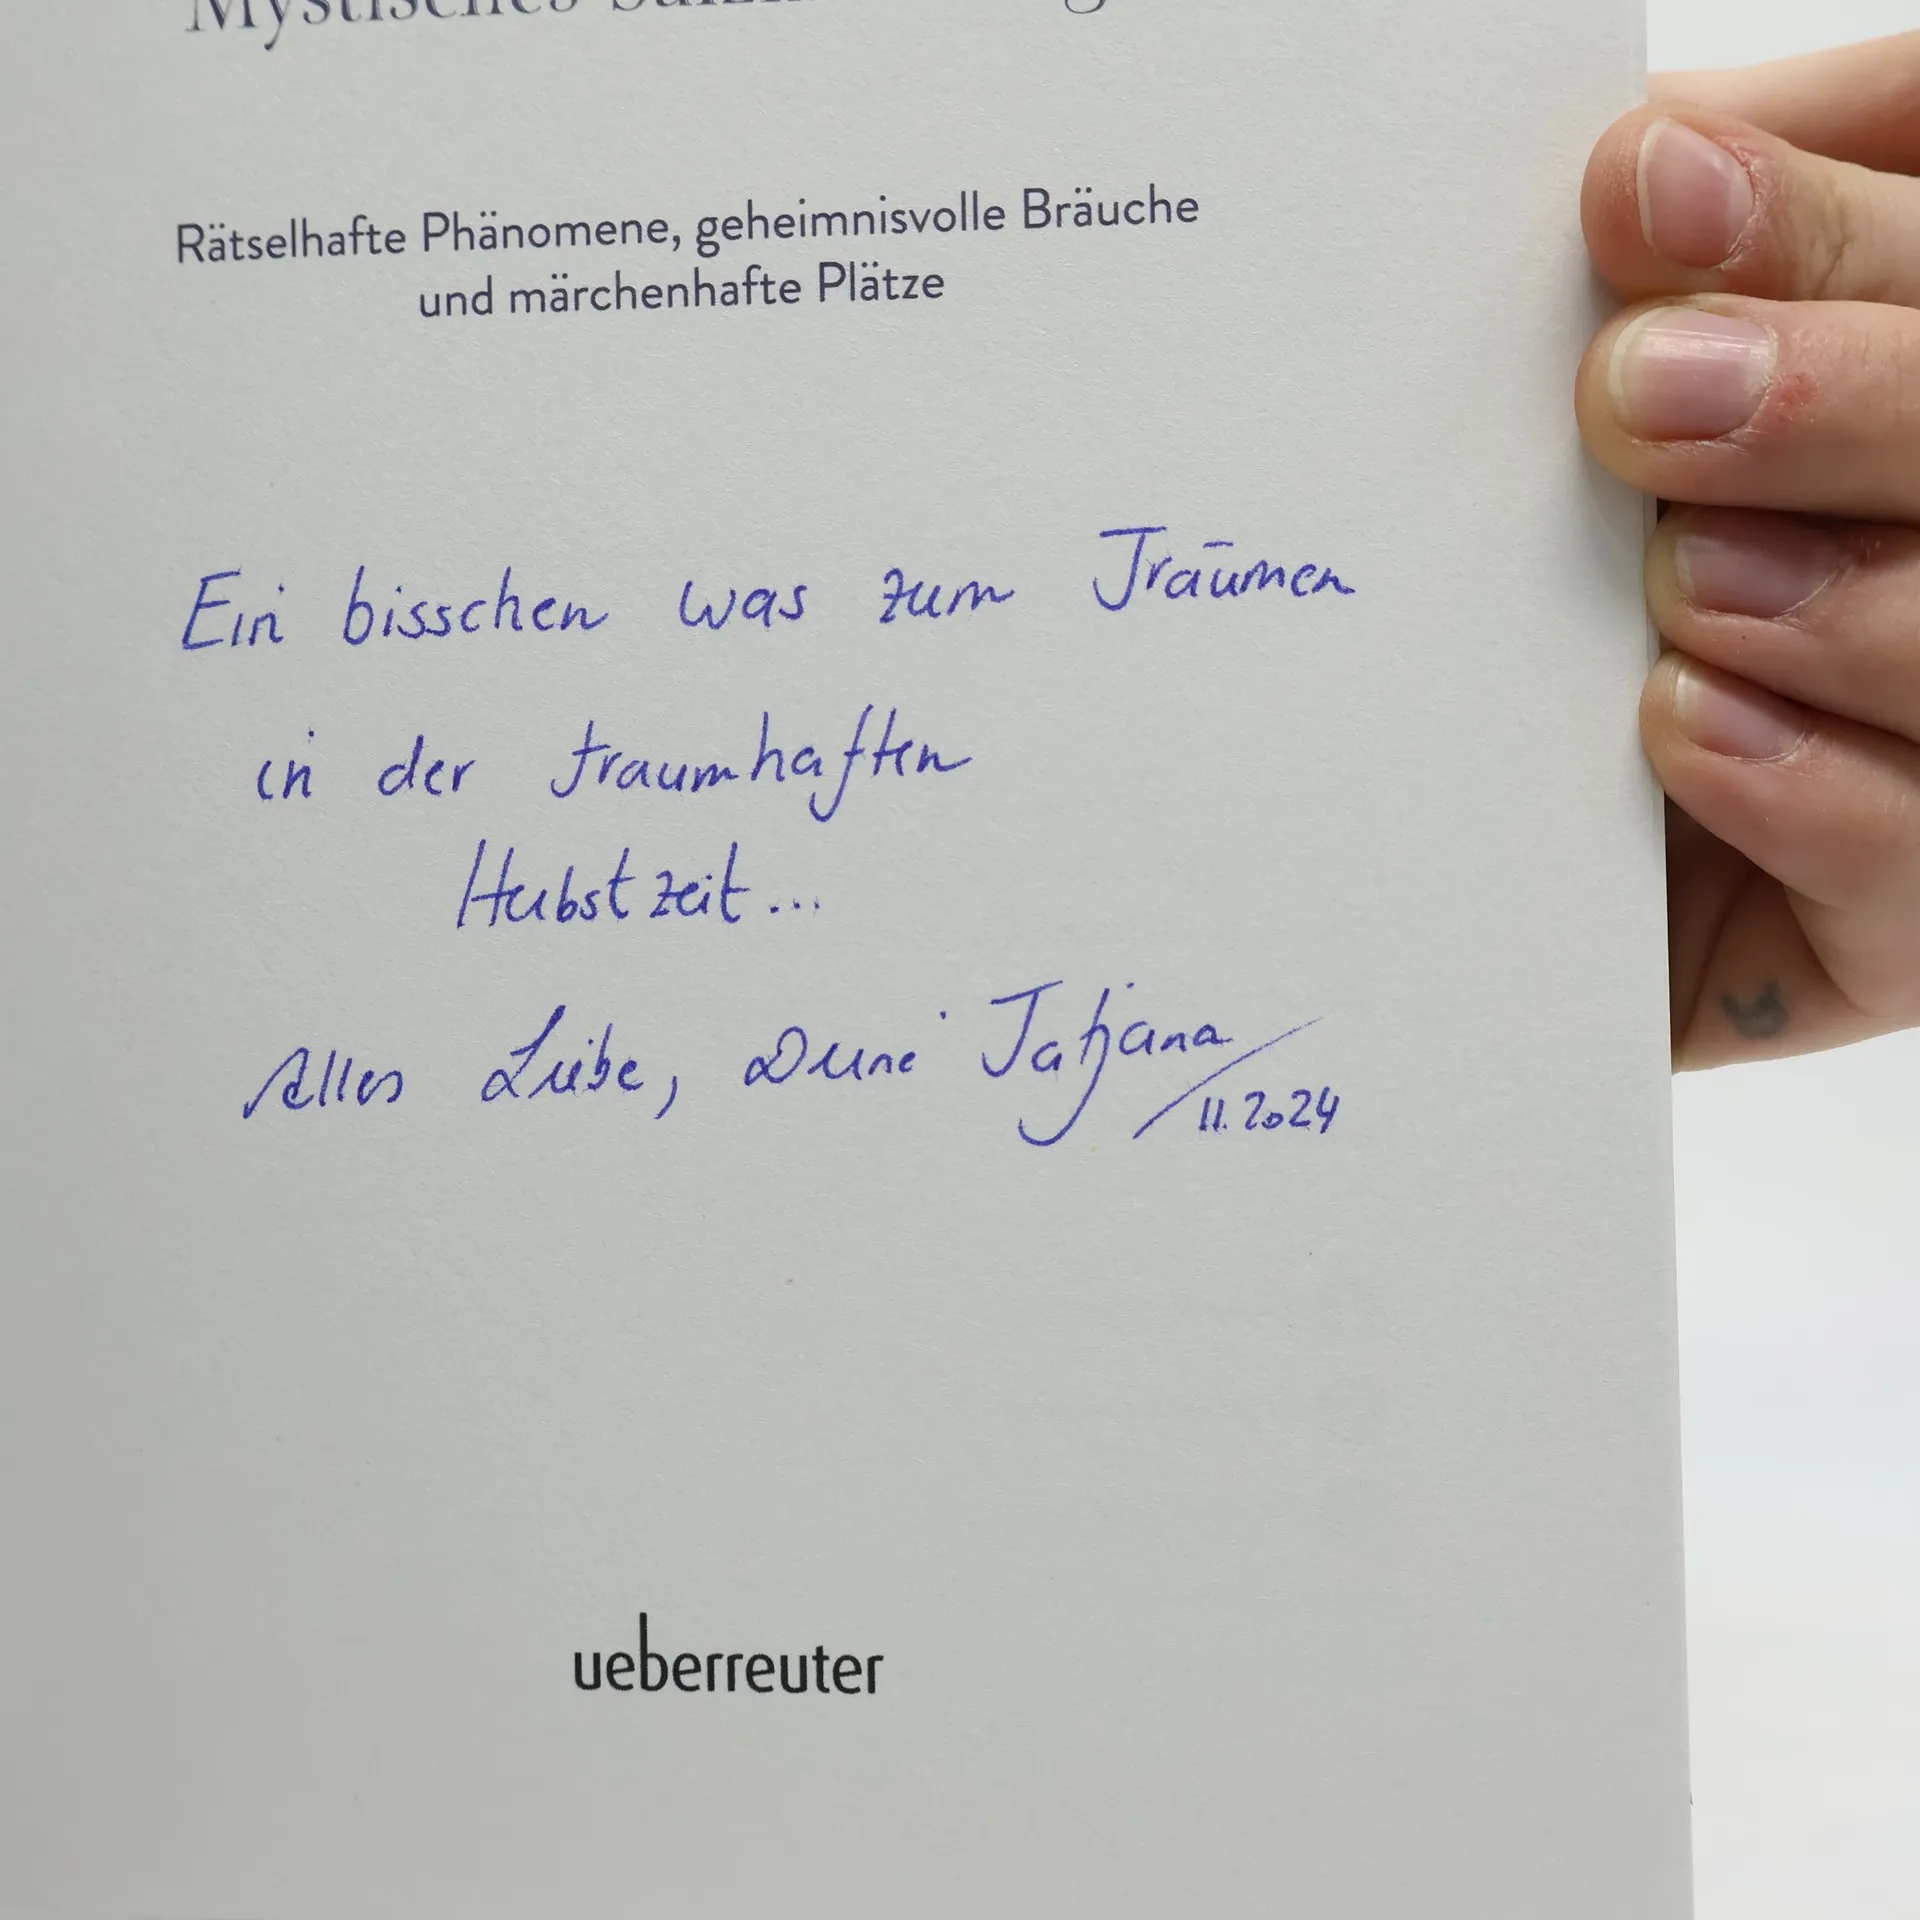 Mystisches
Rätselhafte Phänomene, geheimnisvolle Bräuche
und märchenhafte Plätze
Ein bisschen was zum Träumen
in der traumhaften
Herbstzeit...
Alles Liebe, Deine Tatjana
11.2024
ueberreuter